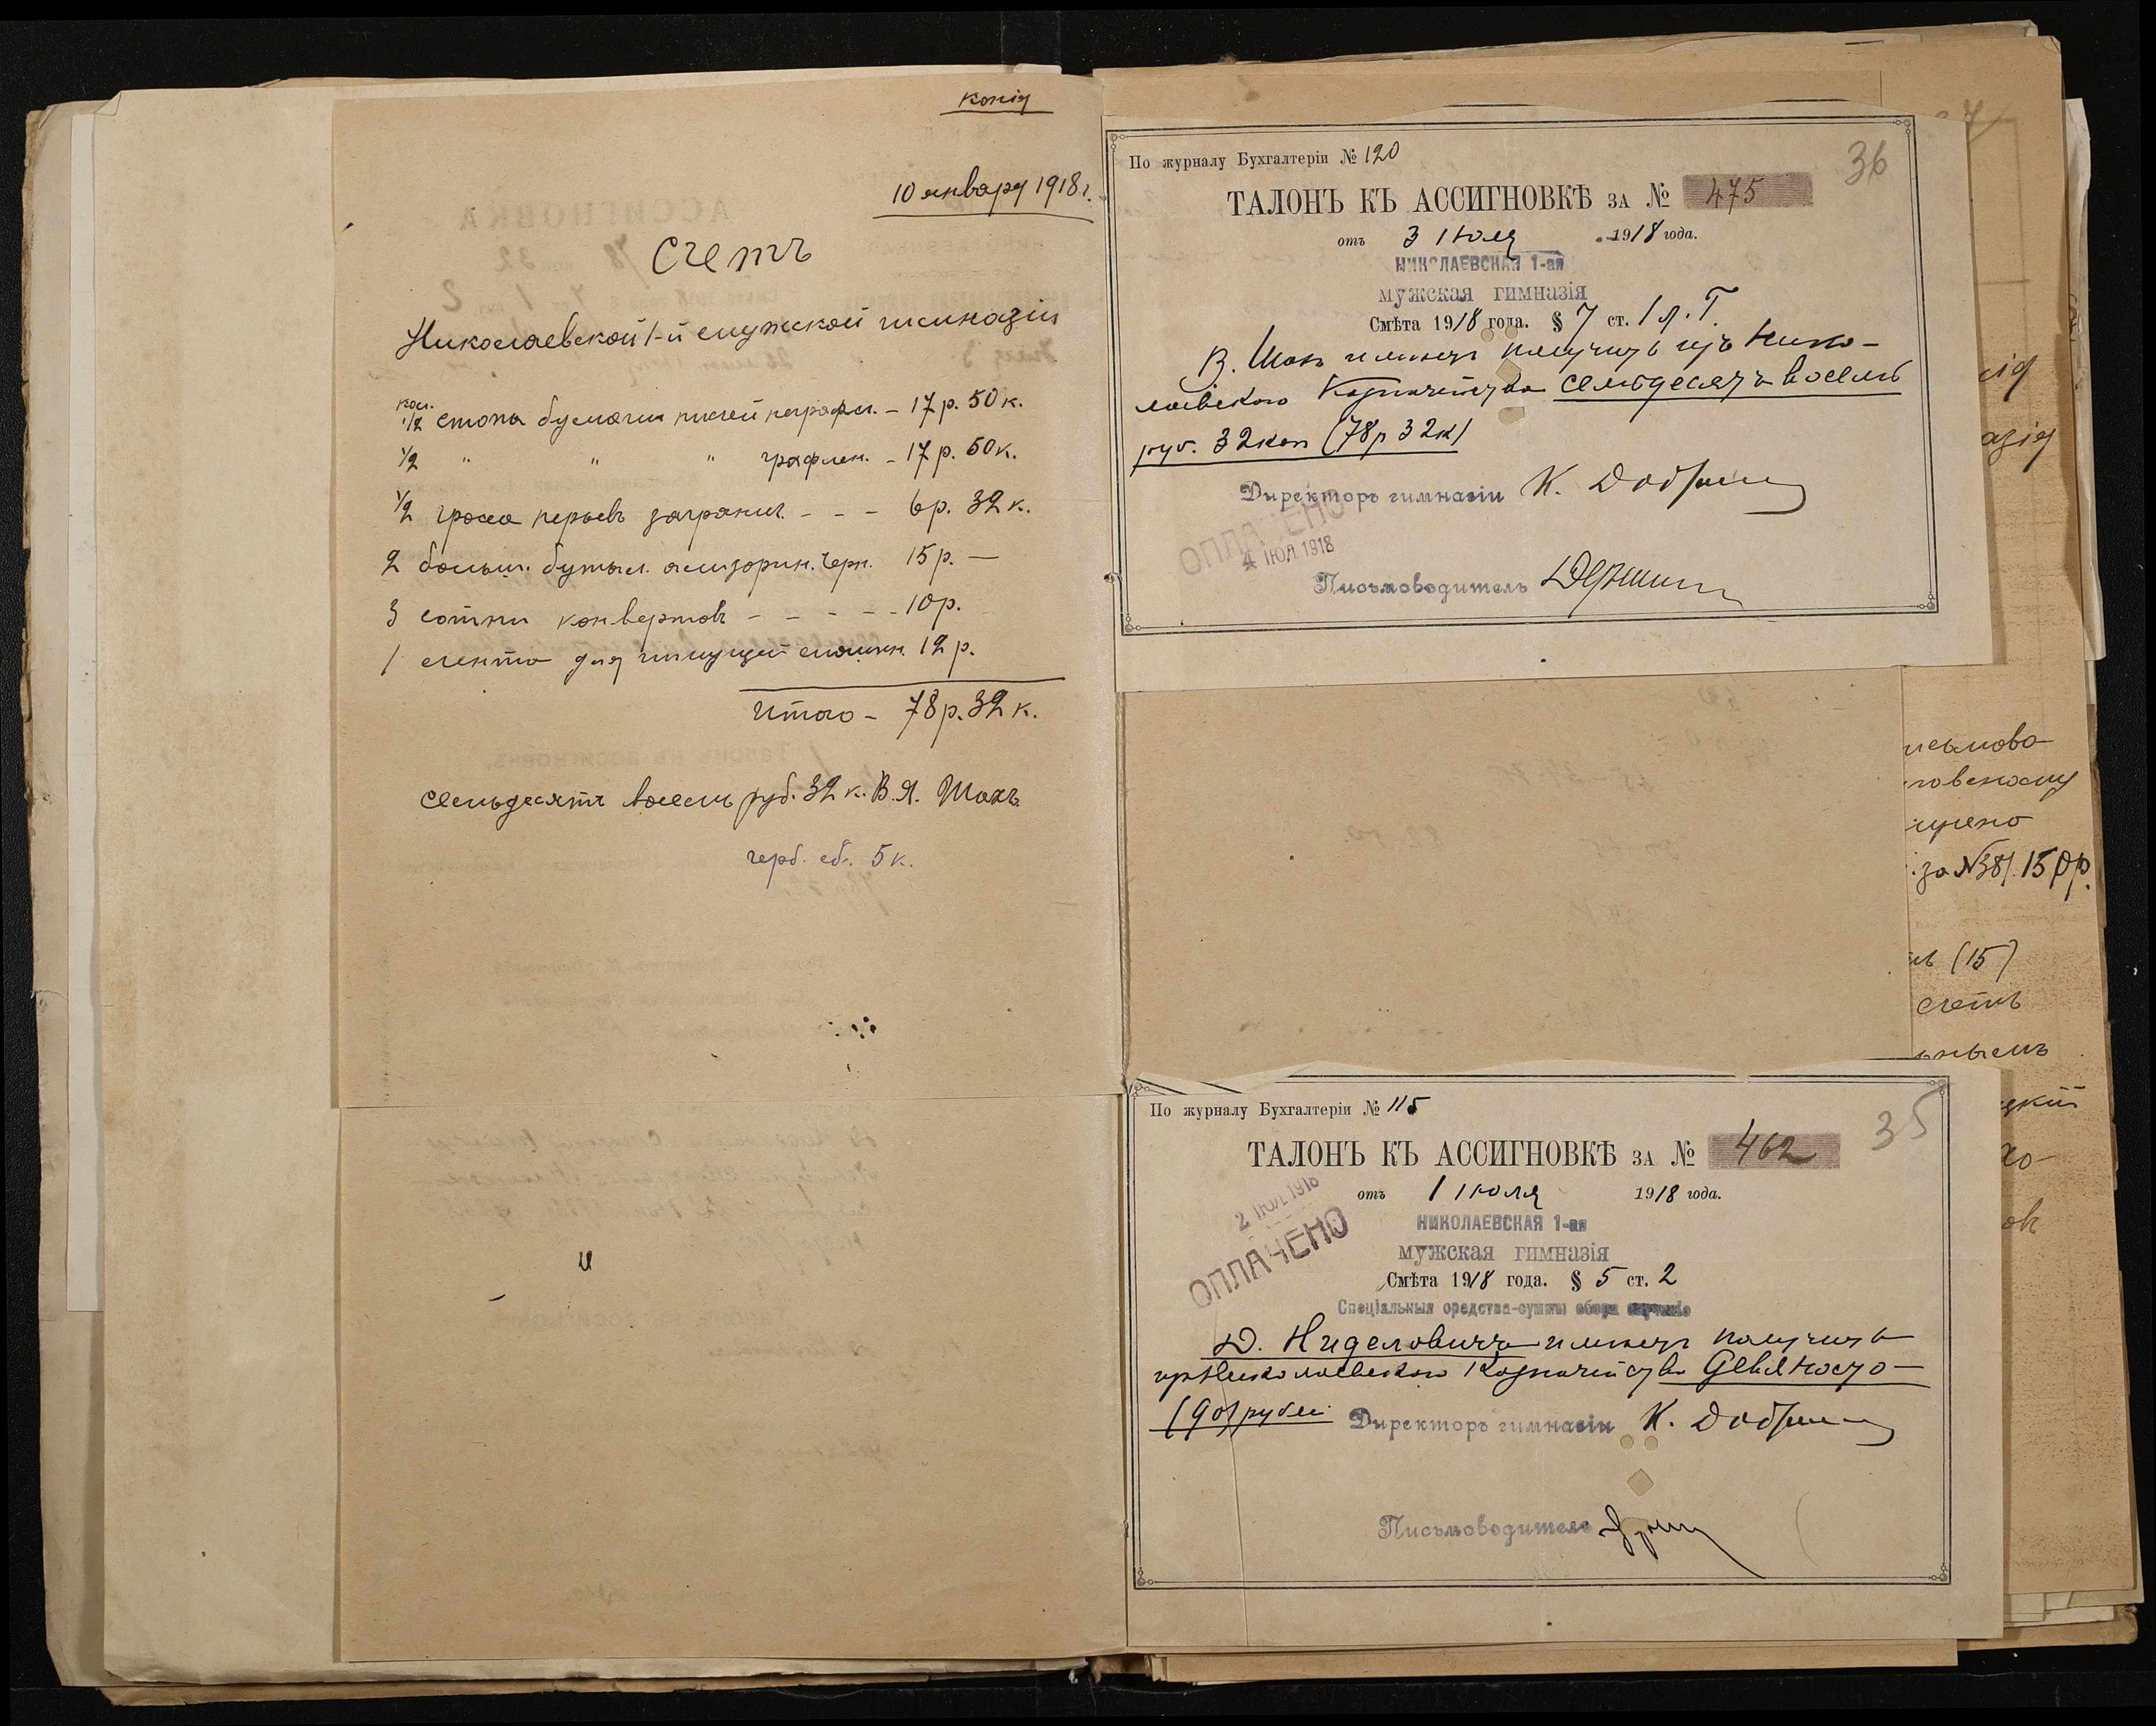 копія
10 января 1918 г.
Счетъ
Николаевской 1-й мужской гимназіи
1/2 стопы бумаги писчей неграфл. – 17 р. 50 к.
1/2 " " " графлен. – 17 р. 50 к.
1/2 гросса перьевъ загранич. – – – 6 р. 32 к.
2 больш. бутыл. ализорин. черн. 15 р. —
3 сотни конвертовъ – – – – – 10 р.
1 лента для пишущей машин. 12 р.
Итого – 78 р. 32 к.
Семьдесятъ восемь руб. 32 к. В. Я. Шахъ
герб. сб. 5 к.
По журналу Бухгалтеріи № 120
36
ТАЛОНЪ КЪ АССИГНОВКѢ ЗА № 475
отъ 3 Іюля 1918 года.
НИКОЛАЕВСКАЯ 1-ая
мужская гимназія
Смѣта 1918 года. § 7 ст. 1 л. Г.
В. Шах имеет получить изъ Нико-
лаевского Казначейства семьдесятъ восемь
руб. 32 коп (78 р 32 к)
Директоръ гимназіи К.
ОПЛАЧЕНО
4 ІЮЛ 1918
Письмоводитель
По журналу Бухгалтеріи № 115
35
ТАЛОНЪ КЪ АССИГНОВКѢ ЗА № 462
отъ 1 Іюля 1918 года.
2 ІЮЛ 1918
ОПЛАЧЕНО
НИКОЛАЕВСКАЯ 1-ая
мужская гимназія
Смѣта 1918 года. § 5 ст. 2
Спеціальныя средства-суммы сбора
Д. Ниделовичъ имеет получить
изъ Николаевского Казначейства Девяносто
(90) рублей Директоръ гимназіи К.
Письмоводитель
ія
азія
исьмово
новскому
ущено
за № 381. 150 р.
(15)
счетъ
ьнымъ
цкій